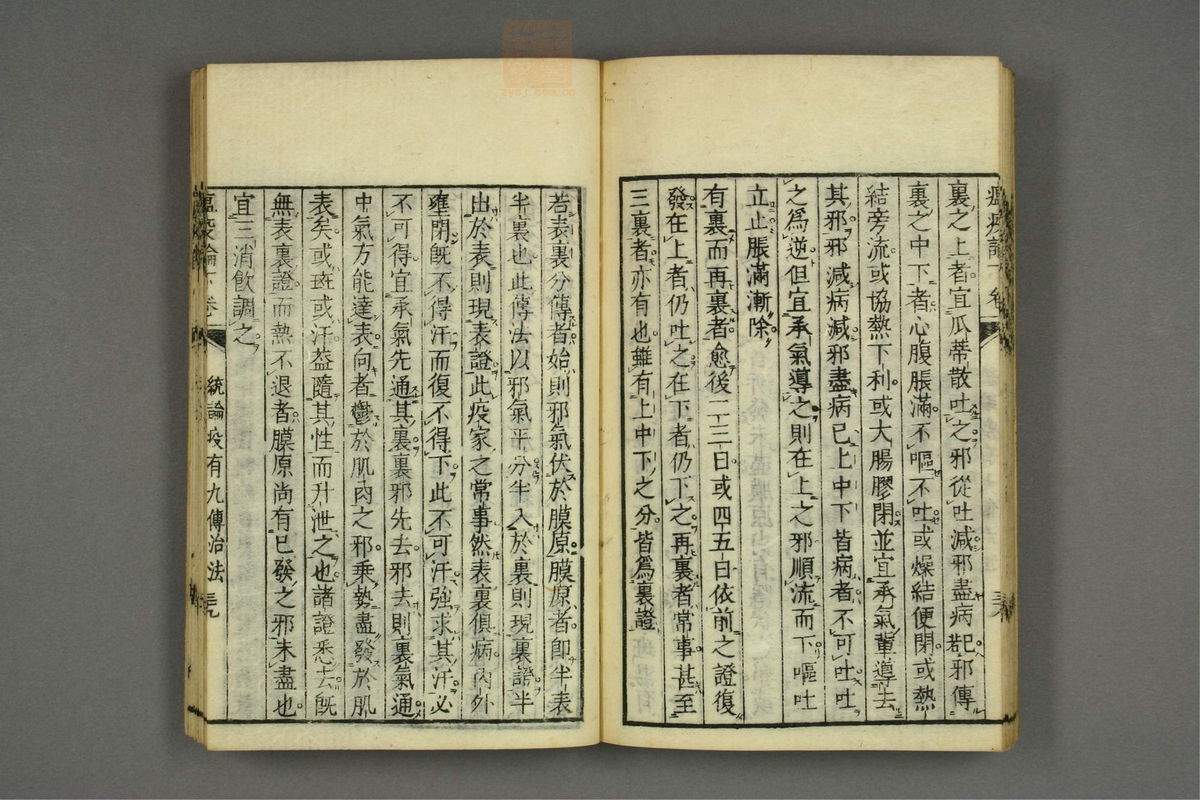 瘟疫論下卷
裏之上者宜瓜蒂散吐之邪從吐減邪盡病已邪傳
裏之中下者心腹脹滿不嘔不吐或燥結便閉或熱
結旁流或協熱下利或大腸膠閉並宜承氣輩導去
其邪邪減病減邪盡病已上中下皆病者不可吐吐
之為逆但宜承氣導之則在上之邪順流而下嘔吐
立止脹滿漸除
有裏而再裏者愈後二三日或四五日依前之證復
發在上者仍吐之在下者仍下之再裏者常事甚至
三裏者亦有也雖有上中下之分皆為裏證
若表裏分傳者始則邪氣伏於膜原膜原者即半表
半裏也此傳法以邪氣平分半入於裏則現裏證半
出於表則現表證此疫家之常事然表裏俱病內外
壅閉既不得汗而復不得下此不可汗強求其汗必
不可得宜承氣先通其裏裏邪先去邪去則裏氣通
中氣方能達表向者鬱於肌肉之邪乘勢盡發於肌
表矣或斑或汗蓋隨其性而升泄之也諸證悉去既
無表裏證而熱不退者膜原尚有已發之邪未盡也
宜三消飲調之
瘟疫論下卷
統論疫有九傳治法